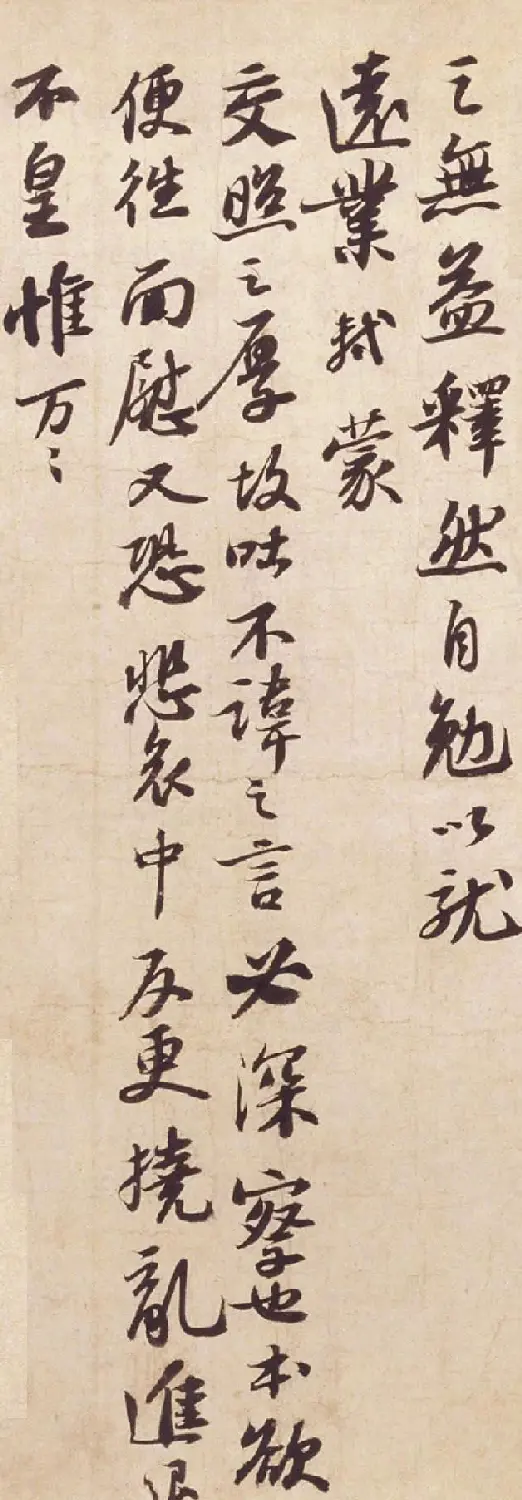 之無益釋然自勉以就
遠業軾蒙
交照之厚故吐不諱之言必深察也本欲
便往面慰又恐悲哀中反更撓亂進退
不皇惟万〻